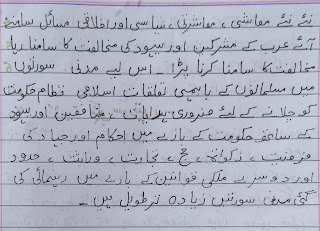 نئے نئے معاشی ، معاشرتی، سیاسی اور اخلاقی مسائل سامنے
آئے عرب کے مشرکین اور یہود کی مخالفت کا سامنا رہا
مخالفت کا سامنا کرنا پڑا ۔ اس لیے مدنی سورتوں
میں مسلمانوں کے باہمی تعلقات اسلامی نظام حکومت
کو چلانے کے لیئے ضروری ہدایات ، منافقین اور یہود
کے ساتھ حکومت کے بارے میں احکام اور جہاد کی
فرضیت ، زکوٰۃ ، حج ، تجارت ، وراثت ، حدود
اور دوسرے ملکی قوانین کے بارے میں رہنمائی کی
گئی مدنی سورتیں زیادہ تر طویل ہیں ۔